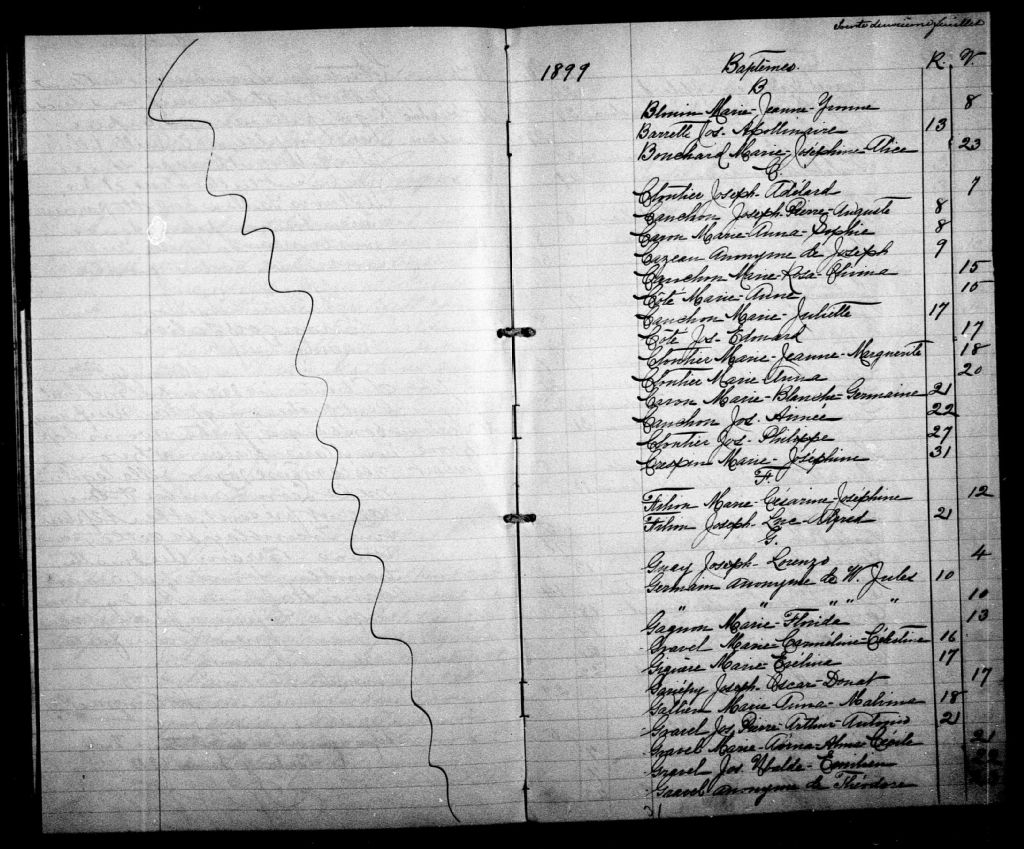 Soixante deuxième feuillet
1899 Baptêmes R. V.
B
Blouin Marie-Jeanne-Yvonne 8
Barrette Jos. Apollinaire 13
Bouchard Marie-Joséphine-Alice 23
C.
Cloutier Joseph-Adélard 7
Cauchon Joseph-Pierre-Auguste 8
Caron Marie-Anna-Sophie 8
Cazeau Anonyme de Joseph 9
Cauchon Marie-Rosa-Eliima 15
Côté Marie-Anne 15
Cauchon Marie-Juliette 17
Côté Jos-Edouard 17
Cloutier Marie-Jeanne-Marguerite 18
Cloutier Marie Anna 20
Caron Marie-Blanche-Germaine 21
Cauchon Jos. Aimée 22
Cloutier Jos. Philippe 27
Crespin Marie-Joséphine 31
F.
Filion Marie-Césarine-Joséphine 12
Filion Joseph-Luc-Alfred 21
G.
Guay Joseph-Lorenzo 4
Germain anonyme de W. Jules 10
" " " " " 10
Gagnon Marie-Floride 13
Gravel Marie-Carméline-Célestine 16
Marie 17
Gariépy Joseph-Oscar-Donat 17
Marie-Anna-Malima 18
Gravel Jos. Pierre-Arthur-Antonio 21
Gravel Marie-Anna-Alma-Cécile 21
Gravel Jos. Ubalde-Emilien
Gravel anonyme de Théodore
31